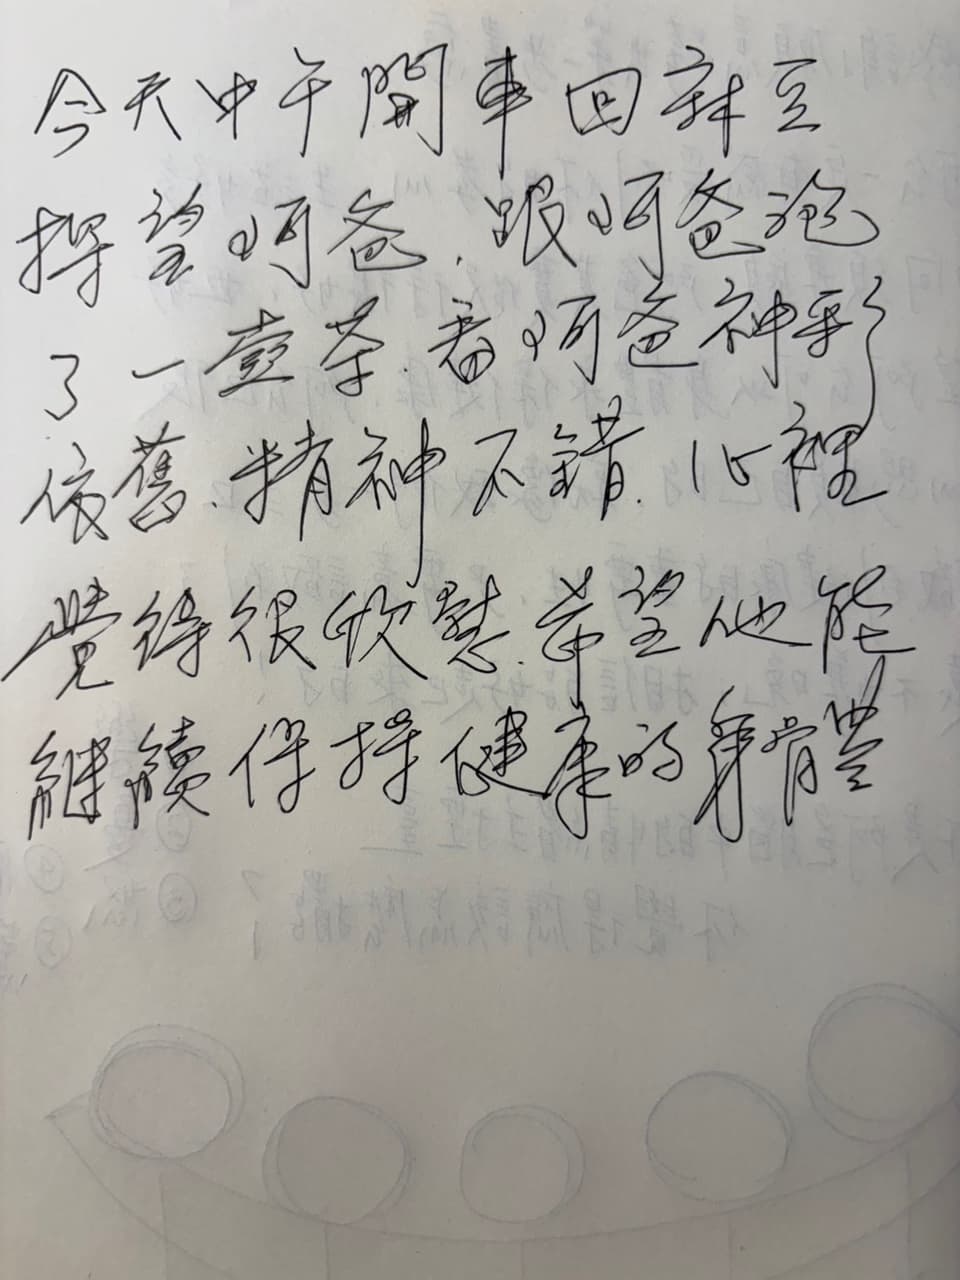 今天中午開車回麻豆
探望阿爸.跟阿爸泡
了一壺茶.看阿爸神彩
依舊.精神不錯.心裡
覺得很欣慰.希望他能
繼續保持健康的身體